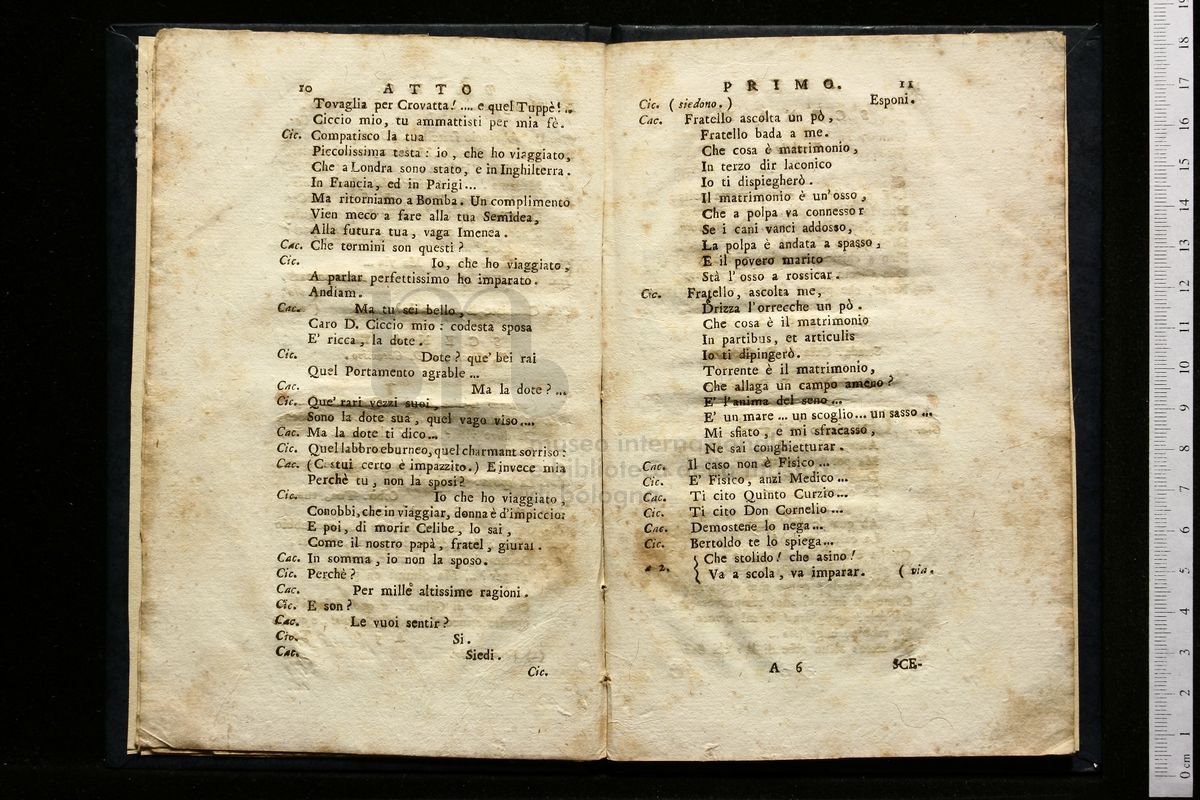 10 ATTO
Tovaglia per Crovatta! .... e quel Tuppè! ..
Ciccio mio, tu ammattisti per mia fè.
Cic. Compatisco la tua
Piccolissima testa: io, che ho viaggiato,
Che a Londra sono stato, e in Inghilterra.
In Francia, ed in Parigi...
Ma ritorniamo a Bomba. Un complimento
Vien meco a fare alla tua Semidea,
Alla futura tua, vaga Imenea.
Cac. Che termini son questi?
Cic. Io, che ho viaggiato,
A parlar perfettissimo ho imparato.
Andiam.
Cac. Ma tu sei bello,
Caro D. Ciccio mio: codesta sposa
E' ricca, la dote.
Cic. Dote? que' bei rai
Quel Portamento agrable ...
Cac. Ma la dote? ...
Cic. Que' rari vezzi suoi,
Sono la dote sua, quel vago viso....
Cac. Ma la dote ti dico...
Cic. Quel labbro eburneo, quel charmant sorriso:
Cac. (C stui certo è impazzito.) E invece mia
Perchè tu, non la sposi?
Cic. Io che ho viaggiato,
Conobbi, che in viaggiar, donna è d'impiccio:
E poi, di morir Celibe, lo sai,
Come il nostro papà, fratel, giurai.
Cac. In somma, io non la sposo.
Cic. Perchè?
Cac. Per mille altissime ragioni.
Cic. E son?
Cac. Le vuoi sentir?
Cic. Si.
Cac. Siedi.
Cic.
PRIMO. 11
Cic. (siedono.) Esponi.
Cac. Fratello ascolta un pò,
Fratello bada a me.
Che cosa è matrimonio,
In terzo dir laconico
Io ti dispiegherò.
Il matrimonio è un'osso,
Che a polpa va connesso r
Se i cani vanci addosso,
La polpa è andata a spasso,
E il povero marito
Stà l'osso a rossicar.
Cic. Fratello, ascolta me,
Drizza l'orrecche un pò.
Che cosa è il matrimonio
In partibus, et articulis
Io ti dipingerò.
Torrente è il matrimonio,
Che allaga un campo ameno?
E' l'anima del seno ...
E' un mare ... un scoglio... un sasso ...
Mi sfiato, e mi sfracasso,
Ne sai conghietturar.
Cac. Il caso non è Fisico ...
Cic. E' Fisico, anzi Medico ...
Cac. Ti cito Quinto Curzio...
Cic. Ti cito Don Cornelio ...
Cac. Demostene lo nega...
Cic. Bertoldo te lo spiega...
a 2. { Che stolido! che asino!
Va a scola, va imparar. (via.
A 6 SCE-
museo internazionale
biblioteca
bologna
0 cm 1 2 3 4 5 6 7 8 9 10 11 12 13 14 15 16 17 18 19